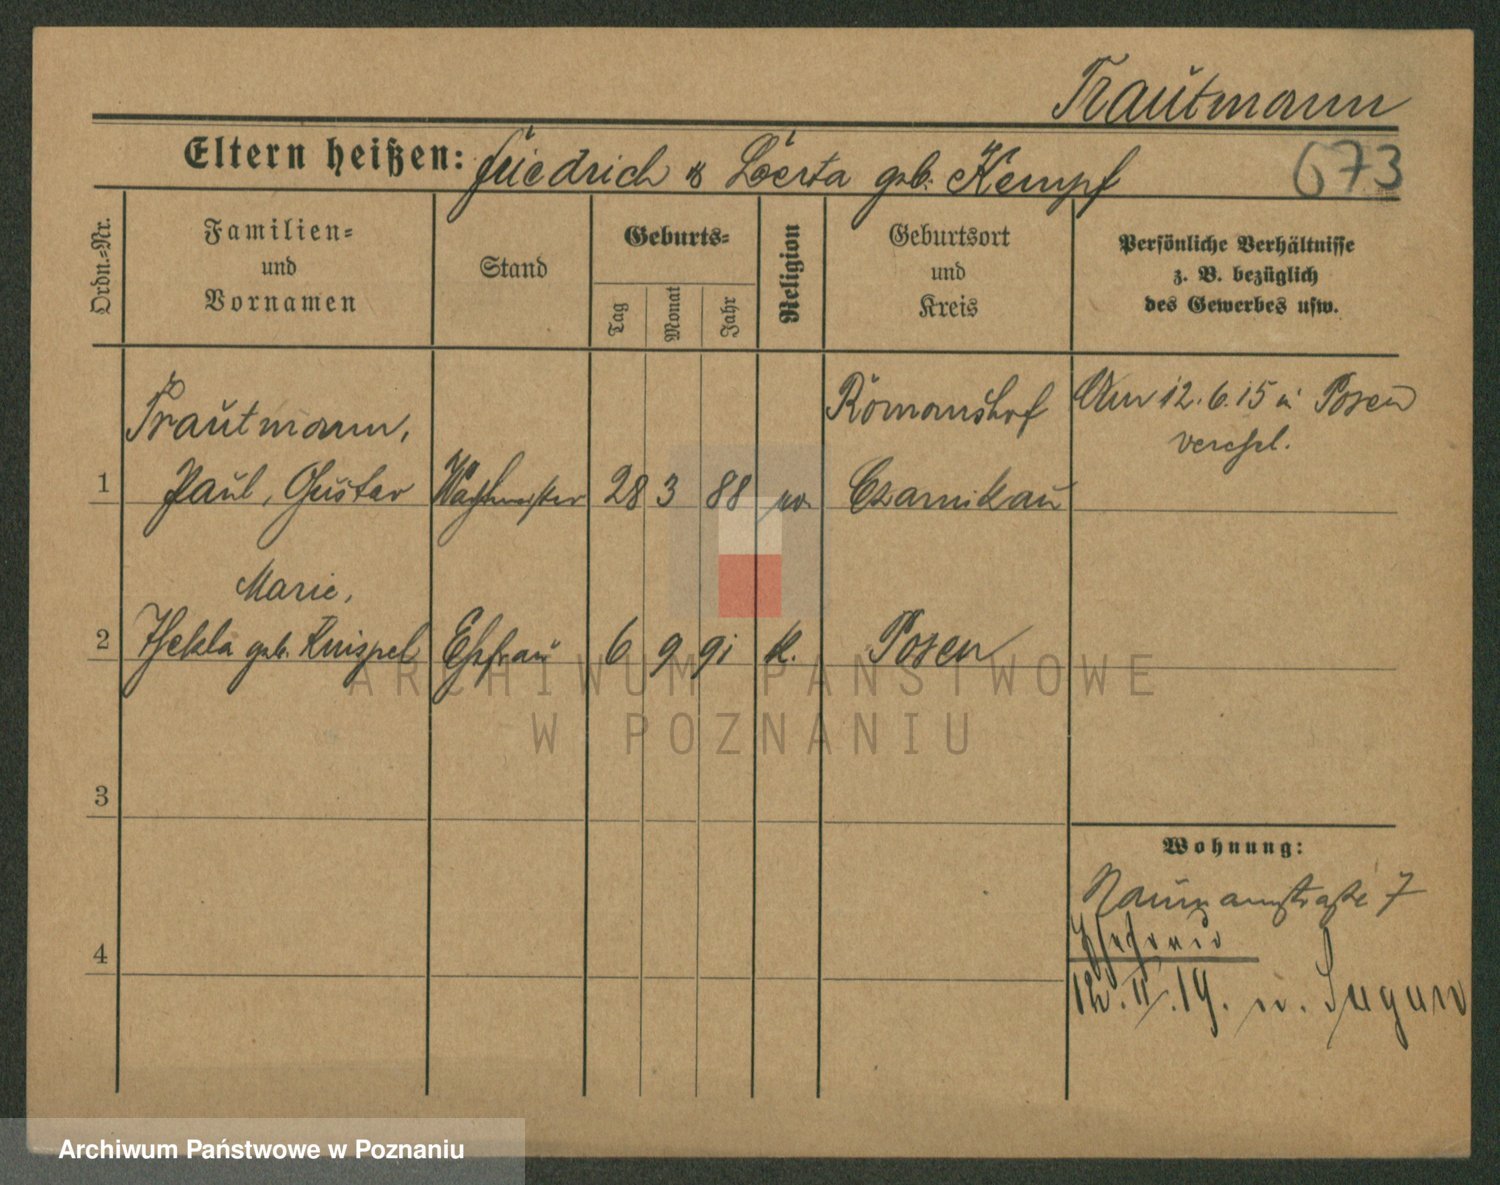 Trautmann
Eltern heißen: Friedrich & Berta geb. Kempf
673
Ordn.-Nr.
Familien-
und
Vornamen
Stand
Geburts-
Tag
Monat
Jahr
Religion
Geburtsort
und
Kreis
Persönliche Verhältnisse
z. B. bezüglich
des Gewerbes usw.
Trautmann,
1 Paul, Gustav Wachtmeister 28 3 88 ev. Czarnikau
Romanshof
Am 12.6.15 in Posen
verehel.
Marie,
2 Thekla geb. Knispel Ehefrau 6 9 91 k. Posen
3
4
Wohnung:
Naumannstraße 7
12.11.19. n.
ARCHIWUM PAŃSTWOWE
W POZNANIU
Archiwum Państwowe w Poznaniu